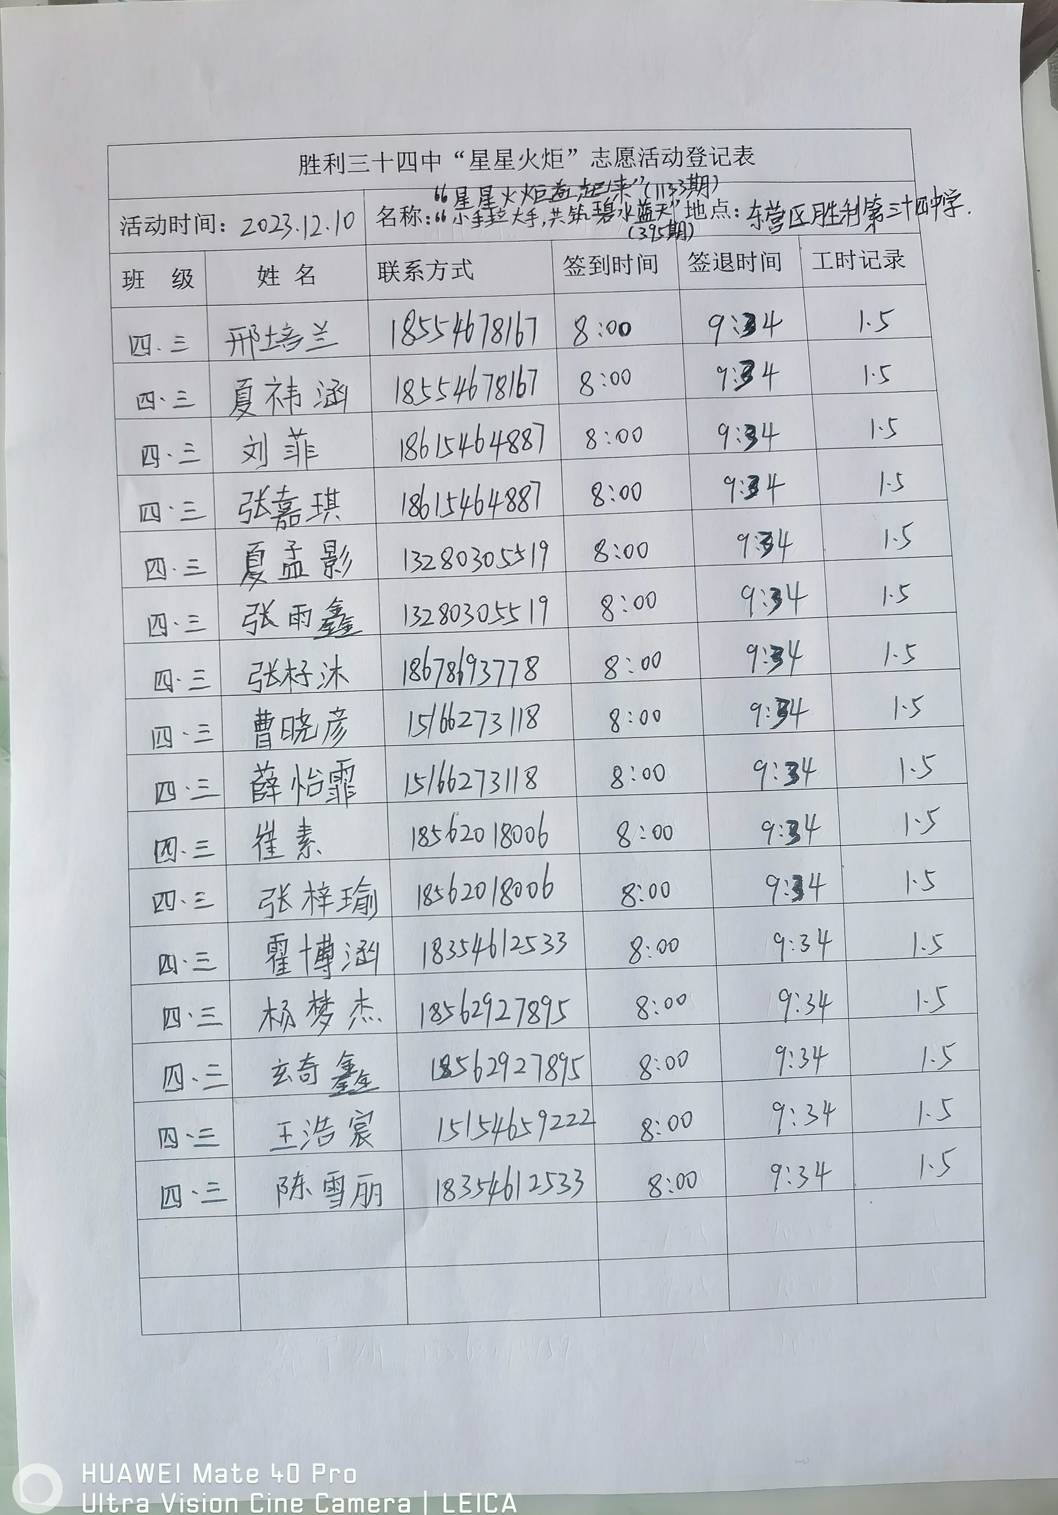 胜利三十四中“星星火炬”志愿活动登记表
活动时间：2023.12.10 名称：“星星火炬燃起来”(1133期)
“小手拉大手,共筑碧水蓝天”(395期) 地点：东营区胜利第三十四中学.
班 级 姓 名 联系方式 签到时间 签退时间 工时记录
四.三 邢培兰 18554678167 8:00 9:34 1.5
四.三 夏祎涵 18554678167 8:00 9:34 1.5
四.三 刘菲 18615464887 8:00 9:34 1.5
四.三 张嘉琪 18615464887 8:00 9:34 1.5
四.三 夏孟影 13280305519 8:00 9:34 1.5
四.三 张雨鑫 13280305519 8:00 9:34 1.5
四.三 张杍沐 18678693778 8:00 9:34 1.5
四.三 曹晓彦 15166273118 8:00 9:34 1.5
四.三 薛怡霏 15166273118 8:00 9:34 1.5
四.三 崔素 18562018006 8:00 9:34 1.5
四.三 张梓瑜 18562018006 8:00 9:34 1.5
四.三 霍博涵 18354612533 8:00 9:34 1.5
四.三 杨梦杰 18562927895 8:00 9:34 1.5
四.三 玄奇鑫 18562927895 8:00 9:34 1.5
四.三 王浩宸 15154659222 8:00 9:34 1.5
四.三 陈雪丽 18354612533 8:00 9:34 1.5
HUAWEI Mate 40 Pro
Ultra Vision Cine Camera | LEICA